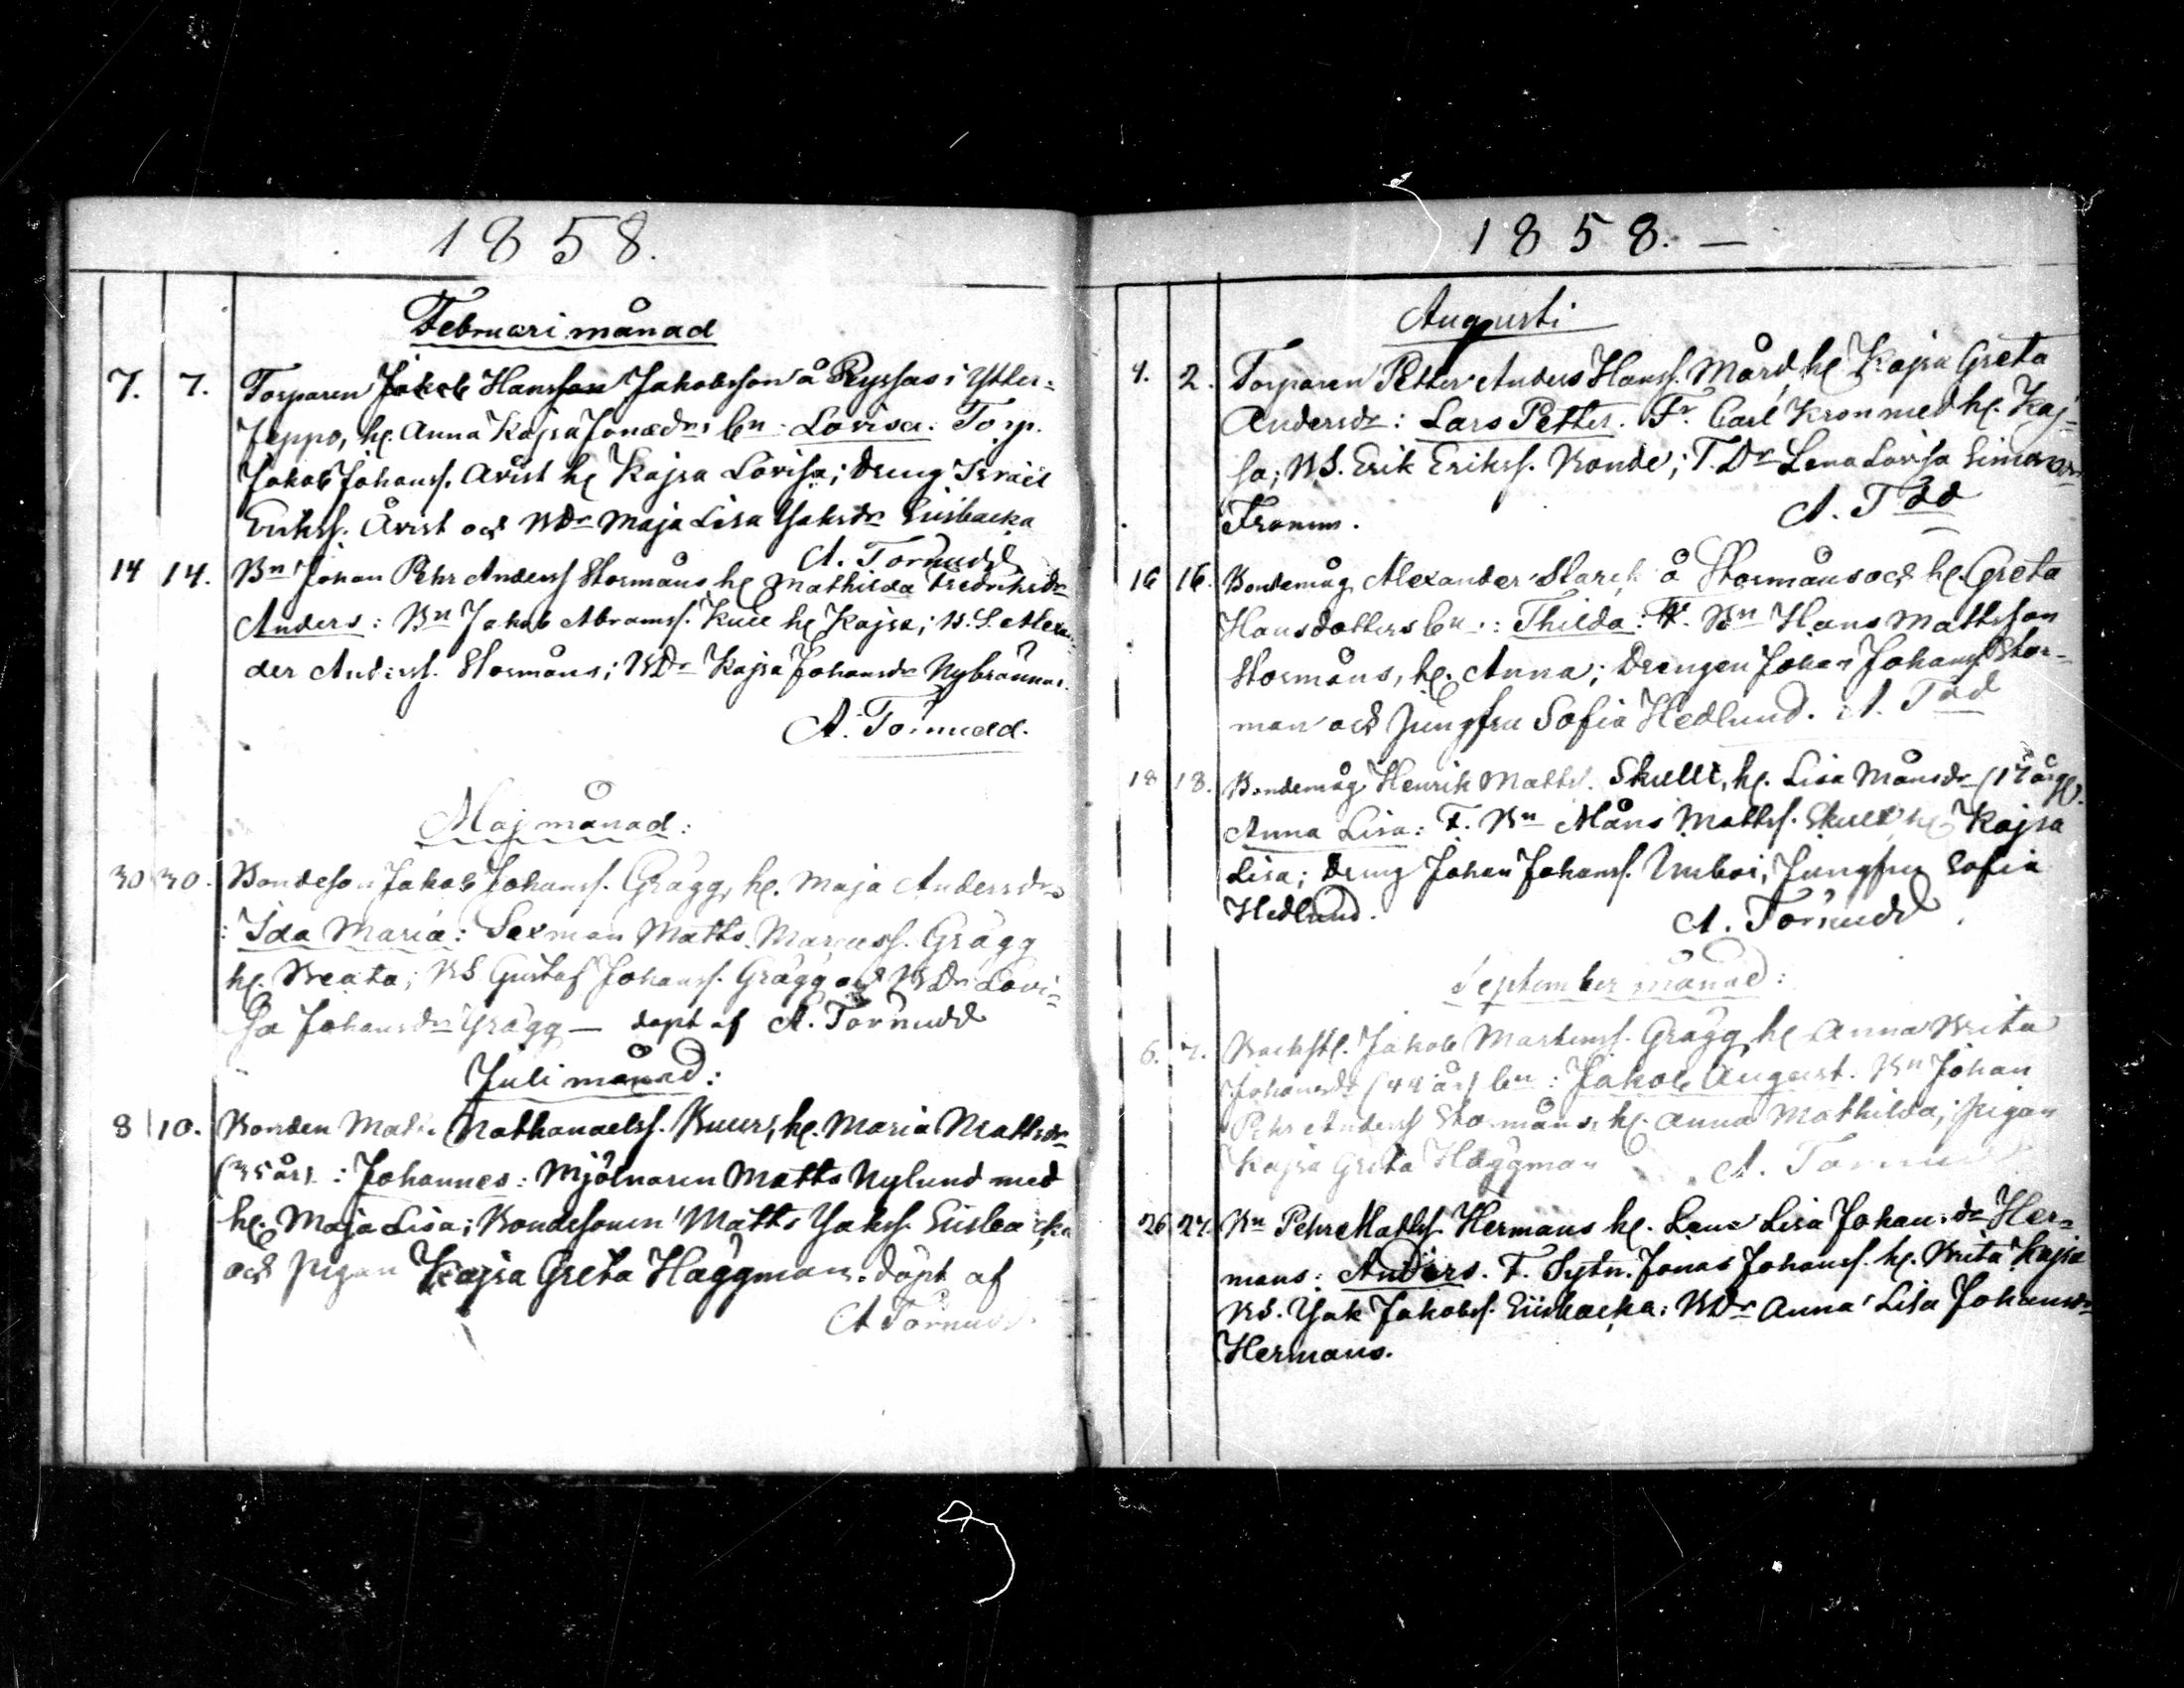 1858.
Februari månad
7. 7. Torparen Jakob Hansson Jakobsson å Ryssas i Ytter=
Jeppo, h. Anna Kajsa Jonædr; bn: Lovisa: Torp.
Jakob Johanss. Åvist h. Kajsa Lovisa; Dreng Israel
Erikss. Åvist och BDr Maja Lisa Isaksdr Eisbacka
A. Törnudd
14 14. Bn Johan Pehr Anderss Stormåns h. Mathilda Fredriksdr
Anders: Bn Jakob Abramss. Kull h. Kajsa; B.S. Alexan-
der Anderss. Stormåns; BDr Kajsa Johansdr Nybrännas.
A. Törnudd.
Maj månad:
30 30. Bondeson Jakob Johanss. Grägg, h. Maja Andersdr
: Ida Maria: Sexman Matts Marcuss. Grägg
h. Beata; BS Gustaf Johanss. Grägg och BDr Lovi=
sa Johansdr Grägg — döpt af A. Törnudd
Juli månad:
8 10. Bonden Matts Nathanaelss. Buurs, h. Maria Mattsdr
(35 år). : Johannes: Mjölnaren Matts Nylund med
h. Maja Lisa; Bondesonen Matts Isakss. Eisbacka
och pigan Kajsa Greta Häggman. döpt af
A Törnudd.
1858. —
Augusti
1. 2. Torparen Petter Anders Hanss. Mård, h. Kajsa Greta
Andersdr: Lars Petter. Fr. Carl Kron med h. Kaj=
sa; BS. Erik Erikss. Bonde; T.Dr Lena Lovisa Simonsdr
Fromm. A. Tdd
16 16. Bondemåg Alexander Starck å Stormåns och h. Greta
Hansdotters bn.: Thilda: F. Bn Hans Mattsson
Stormåns, h. Anna; Drengen Johan Johanss. Stor-
man och Jungfru Sofia Hedlund. A. Tdd
18 18. Bondemåg Henrik Matts. Skull, h. Lisa Månsdr (17 årg).
Anna Lisa: F. Bn Måns Mattss. Skull h. Kajsa
Lisa; Dreng Johan Johanss. , Jungfru Sofia
Hedlund. A. Törnudd.
September månad:
6. 7. Backst. Jakob Martenss. Grägg h. Anna Brita
Johansdr (44 år) bn: Jakob August. Bn Johan
Pehr Anderss Stormåns, h. Anna Mathilda; pigan
Kajsa Greta Häggman A. Törnudd
26 27. Bn Pehr Mattss. Hermans h. Lena Lisa Johansdr Her=
mans: Anders. F. Sytn. Jonas Johanss. h. Brita Kajsa
BS. Isak Jakobss. Eisbacka: BDr Anna Lisa Johansdr
Hermans.